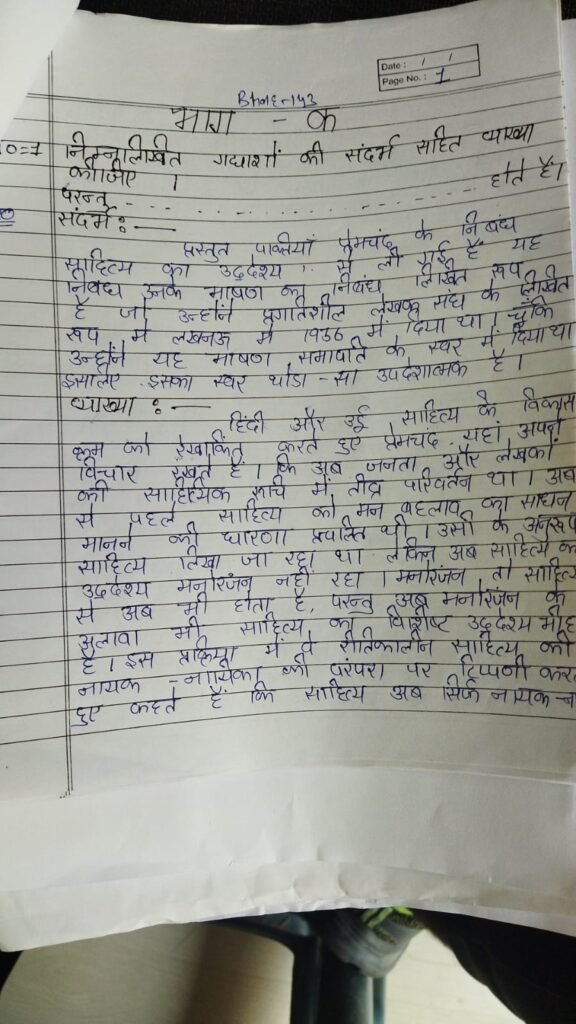 Date : / /
Page No. : 1
BHDE-143
भाग - क
निम्नलिखित गद्याशों की संदर्भ सहित व्याख्या
कीजिए ।
परन्तु - - - - - - - - - - - - - - - होते हैं।
संदर्भ : —
प्रस्तुत पंक्तियाँ प्रेमचंद के निबंध
साहित्य का उद्देश्य । से ली गई हैं यह
निबंध उनके भाषण का निबंध लिखित रूप
है जो उन्होंने प्रगतिशील लेखक संघ के लिखित
रूप में लखनऊ में 1936 में दिया था। चूंकि
उन्होंने यह भाषण सभापति के स्वर में दिया था
इसलिए इसका स्वर थोडा - सा उपदेशात्मक है।
व्याख्या : —
हिंदी और उर्दू साहित्य के विकास
क्रम को रेखांकित करते हुए प्रेमचंद यहां अपने
विचार रखते हैं। कि अब जनता और लेखकों
की साहित्यिक रूचि में तीव्र परिवर्तन था। अब
से पहले साहित्य को मन बहलाव का साधन
मानने की धारणा प्रचलित थी। उसी के अनुरूप
साहित्य लिखा जा रहा था लेकिन अब साहित्य का
उद्देश्य मनोरंजन नही रहा। मनोरंजन तो साहित्य
से अब भी होता है, परन्तु अब मनोरंजन के
अलावा भी साहित्य का विशिष्ट उद्देश्य भी
है। इस प्रक्रिया में वे रीतिकालीन साहित्य की
नायक - नायिका की परंपरा पर टिप्पणी करते
हुए कहते हैं कि साहित्य अब सिर्फ नायक-ना